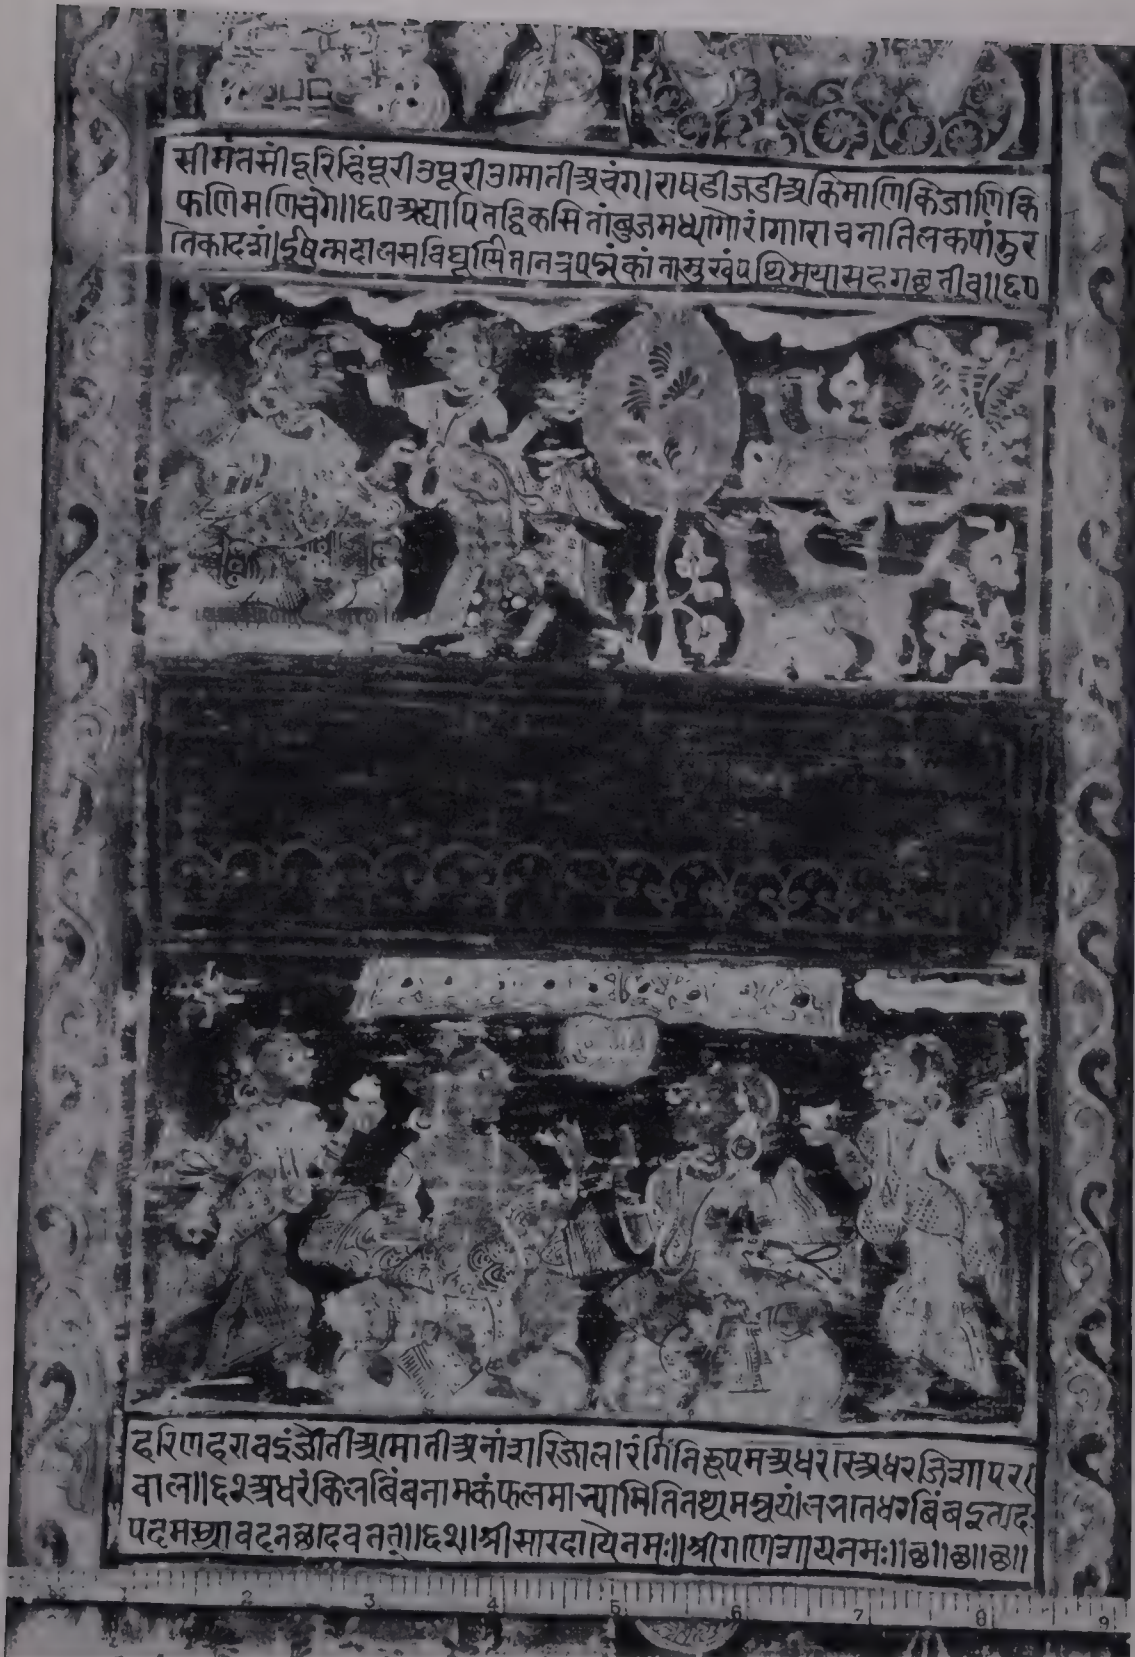 सीमंतसींदूरिहिंपूरीअपूरीअमोतीअचंग।राषडीजडीअकिमाणिकिजाणिकि
फणिमणिचंग॥६०अद्यापितद्विकसितांबुजमध्यगौरंगोरोचनातिलकपांडुर
ईषन्मदालसविघूर्णित कांतामुखंपथिमयासहगच्छतीव॥६०
हरिणहरावइं मोतीअ रंगिनिरूपमअधर
॥६१अधरंकिलबिंबनामकंफलमाभ्यामितितथ्यमन्वयं।लभतेधरबिंबइत्यदः
पदमस्यावदनच्छदेवनतत्॥६१॥श्रीसारदायैनमः॥श्रीगणेशायनमः॥छ॥छ॥छ॥
2 3 4 5 6 7 8 9